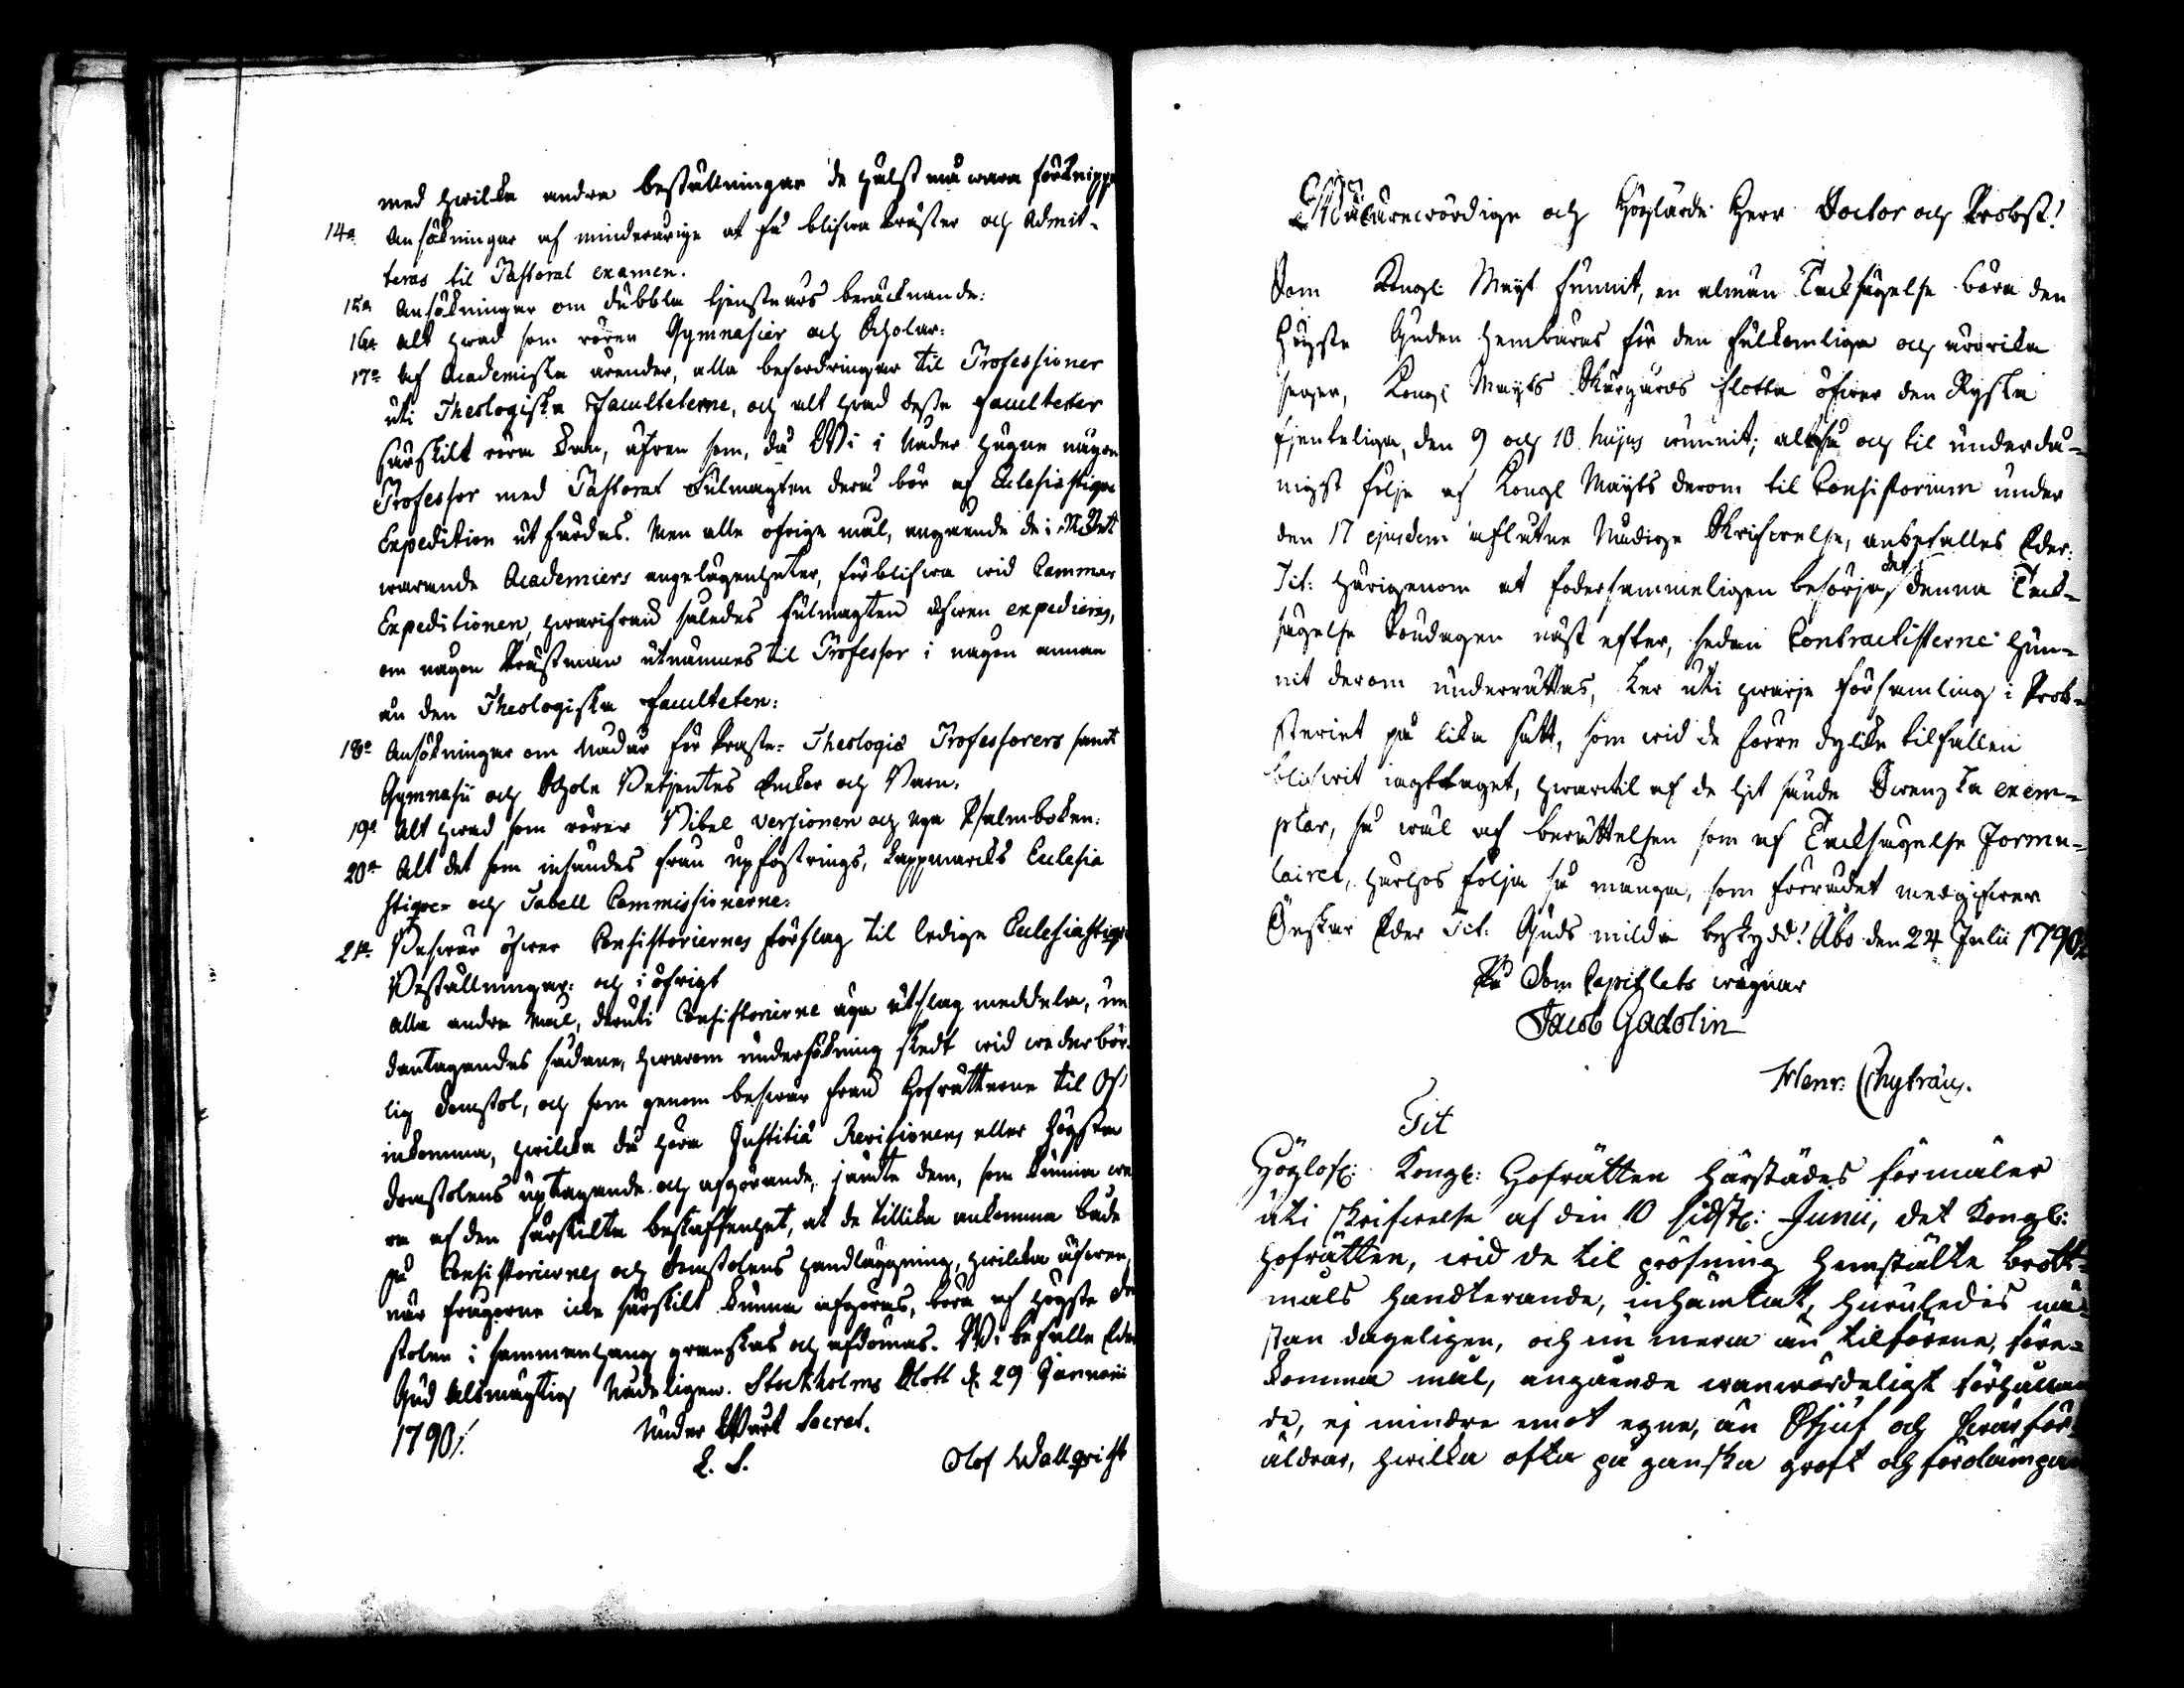 med hwilka andra beställningar de hälst må wara förknipp
14o Ansökningar af minderårige at få blifwa Präster och Admit-
teras til Pastoral examen.
15o Ansökningar om dubbla tjenstears beräcknande:
16o Alt hwad som rörer Gymnasier och Scholar:
17o Af Academiska ärender, alla befordringar til Professioner
uti Theologiska Faculteterne, och alt hwad desse Faculteter
särskilt röra kan, äfwen som, då Wi i Nåder hugne någon
Professor med Pastorat Fulmagten derå bör af Eclesiastique
Expedition utfärdas. Men alla öfrige mål, angående de i Riket
warande Academiers angelägenheter, förblifwa wid Cammar
Expeditionen, hwarifrån således Fulmagten äfwen expedieras,
om någon Prästman utnämnes til Professor i någon annan
än den Theologiska Faculteten:
18o Ansökningar om Nådår för Präste- Theologiæ Professorers samt
Gymnasii och Schole Betjentes Enkor och Barn.
19o Alt hwad som rörer Bibel versionen och nya Psalmboken:
20o Alt det som insändes från upfostrings, Lappmarcks Eclesia
stique- och Tabell Commissionerne:
21o Beswär öfwer Consistoriernes förslag til ledige Eclesiastique
Beställningar: och i öfrigt
Alla andra Mål, deruti Consistorierne äga utslag meddela, un
dantagandes sådane, hwarom undersökning skedt wid wederbör-
lig Domstol, och som genom beswär från Hofrätterne til Oss
inkomma, hwilka då höra Justitiæ Revisionens eller Högsta
Domstolens uptagande och afgörande, jämte dem, som kunna wa
ra af den särskilta beskaffenhet, at de tillika ankomma både
på Consistoriernes och Domstolens handläggning, hwilka äfwen,
när frågorne icke särskilt kunna afgöras, böra af Högste Dom
stolen i sammanhang granskas och afdömas. Wi befalle Eder
Gud Alsmägtig Nådeligen. Stockholms Slott d. 29 Januarii
1790/.
Under Wårt Secret.
L. S.
Olof Wallqvist
Mångärewördige och Höglärde Herr Doctor och Probst!
Som Kongl Mayt funnit, en alman Tacksägelse böra den
Högste Guden hembäras för den fulkomliga och ärorika
seger, Kongl Mayts Skärgårds flotta öfwer den Ryska
fjenteliga, den 9 och 10 hujus wunnit; altså och til underdå-
nigst följe af Kongl Mayts derom til Consistorium under
den 17 ejusdem aflåtne Nådige Skrifwelse, anbefalles Eder
Tit: härigenom at fodersammeligen besörja, det denna Tack-
sägelse Söndagen näst efter, sedan Contractisterne hun-
nit derom underrättas, sker uti hwarje församling i Prob-
steriet på lika sätt, som wid de förre dylika tilfällen
blifwit iagttaget, hwartil af de hit sände Swenska exem-
plar, så wäl af berättelsen som af Tacksägelse Formu-
lairet, härhos följa så många, som förrådet medgifwer
Önskar Eder Tit: Guds milda beskydd! Åbo den 24 Julii 1790/.
På Dom Capitlets wägnar
Jacob Gadolin
Henr: Chytræus.
Tit
Höglofl: Kongl: Hofrätten härstädes förmäler
uti skrifwelse af den 10 sidstl: Junii, det Kongl:
Hofrätten, wid de til pröfning hemstälte brott-
måls handterande, inhämtat, huruledes nä-
stan dageligen, och nu mera än tilförene, före-
komma mål, angående wanwördeligt förhållan
de, ej mindre emot egne, än Stjuf och Swär för-
äldrar, hwilka ofta på ganska groft och förolämpan